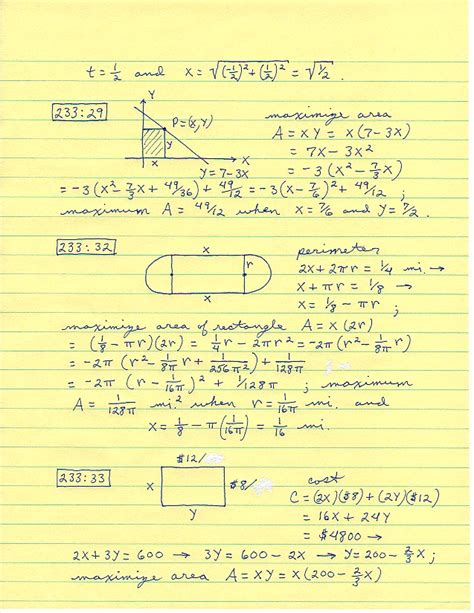 t = 1/2 and x = √((-1/2)² + (1/2)²) = √(1/2) .
233:29
Y
P=(X,Y)
Y
X
X
Y = 7-3X
maximize area
A = XY = X(7-3X)
= 7X - 3X²
= -3(X² - 7/3 X)
= -3(X² - 7/3 X + 49/36) + 49/12 = -3(X - 7/6)² + 49/12 ;
maximum A = 49/12 when X = 7/6 and Y = 7/2 .
233:32
X
r
X
perimeter
2X + 2πr = 1/4 mi. →
X + πr = 1/8 →
X = 1/8 - πr ;
maximize area of rectangle A = X(2r)
= (1/8 - πr)(2r) = 1/4 r - 2πr² = -2π(r² - 1/8π r)
= -2π (r² - 1/8π r + 1/256π²) + 1/128π
= -2π (r - 1/16π)² + 1/128π ; maximum
A = 1/128π mi.² when r = 1/16π mi. and
X = 1/8 - π(1/16π) = 1/16 mi.
233:33
$12/
X
$8/
Y
cost
C = (2X)($8) + (2Y)($12)
= 16X + 24Y
= $4800 →
2X + 3Y = 600 → 3Y = 600 - 2X → Y = 200 - 2/3 X ;
maximize area A = XY = X(200 - 2/3 X)